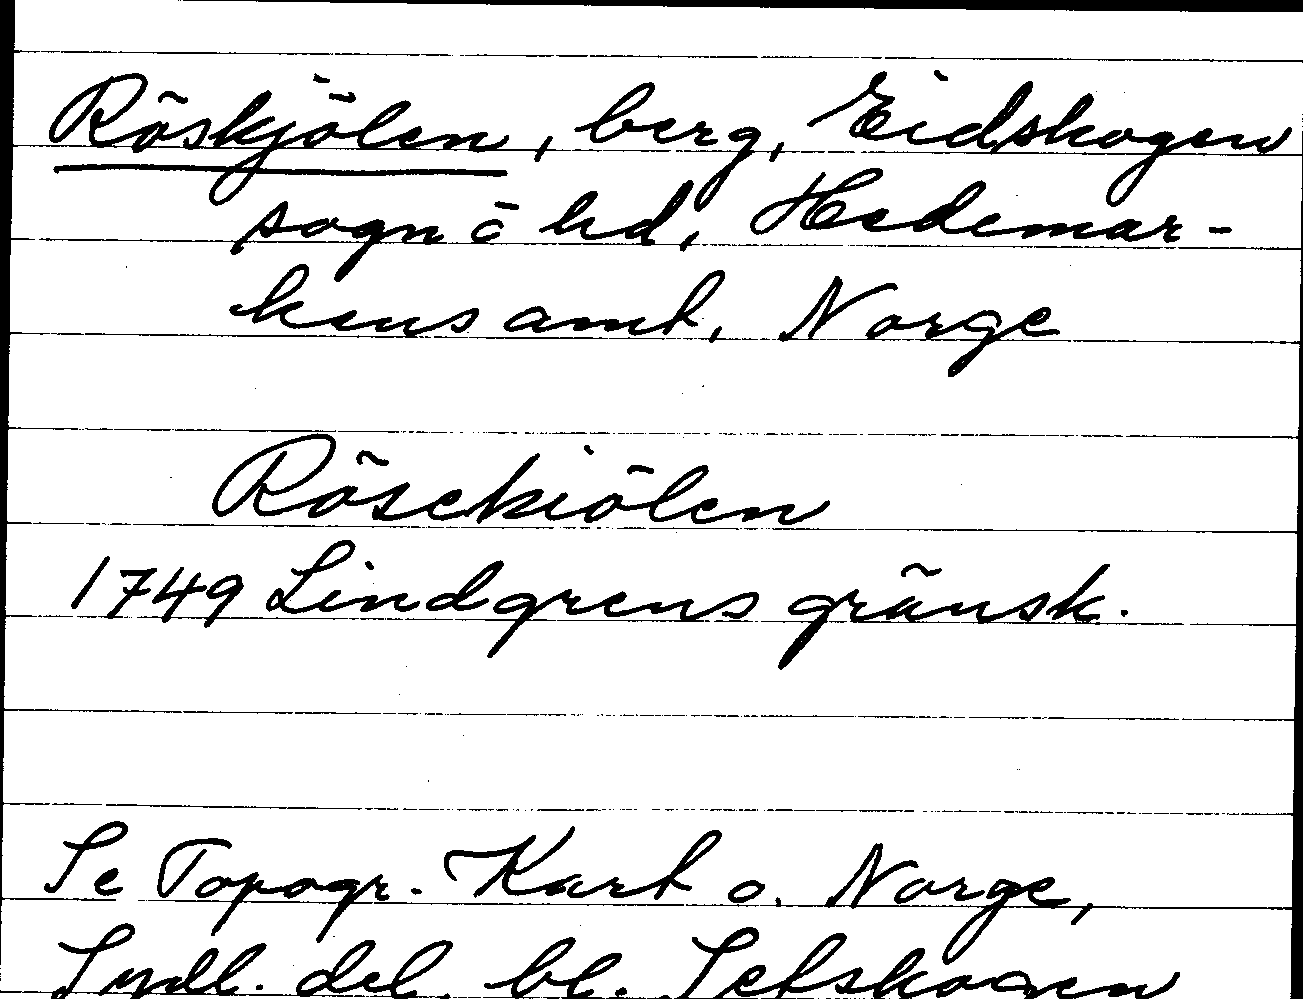 Röskjölen, berg, Eidskogen
sogn o hd, Hedemar-
kens amt, Norge
Rösekiölen
1749 Lindgrens gränsk.
Se Topogr. Kart o. Norge,
Sydl. del. bl. Setskogen